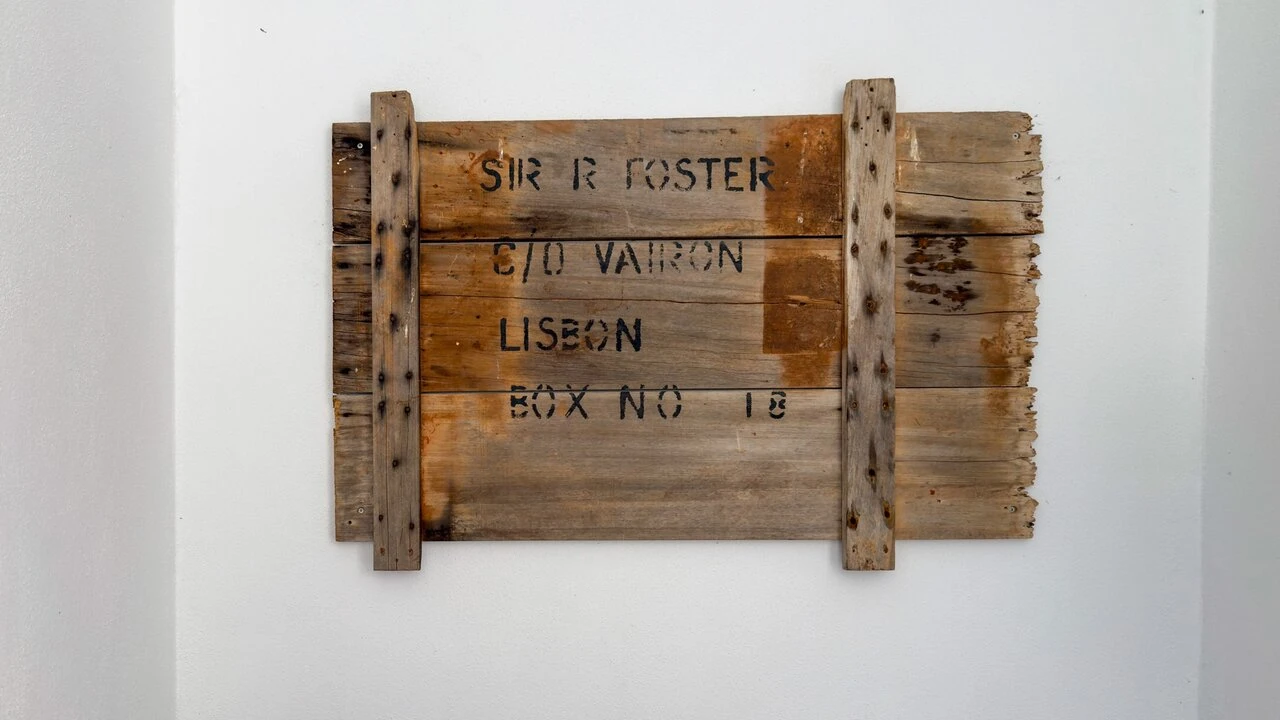 SIR R FOSTER
C/O VAIRON
LISBON
BOX NO 18